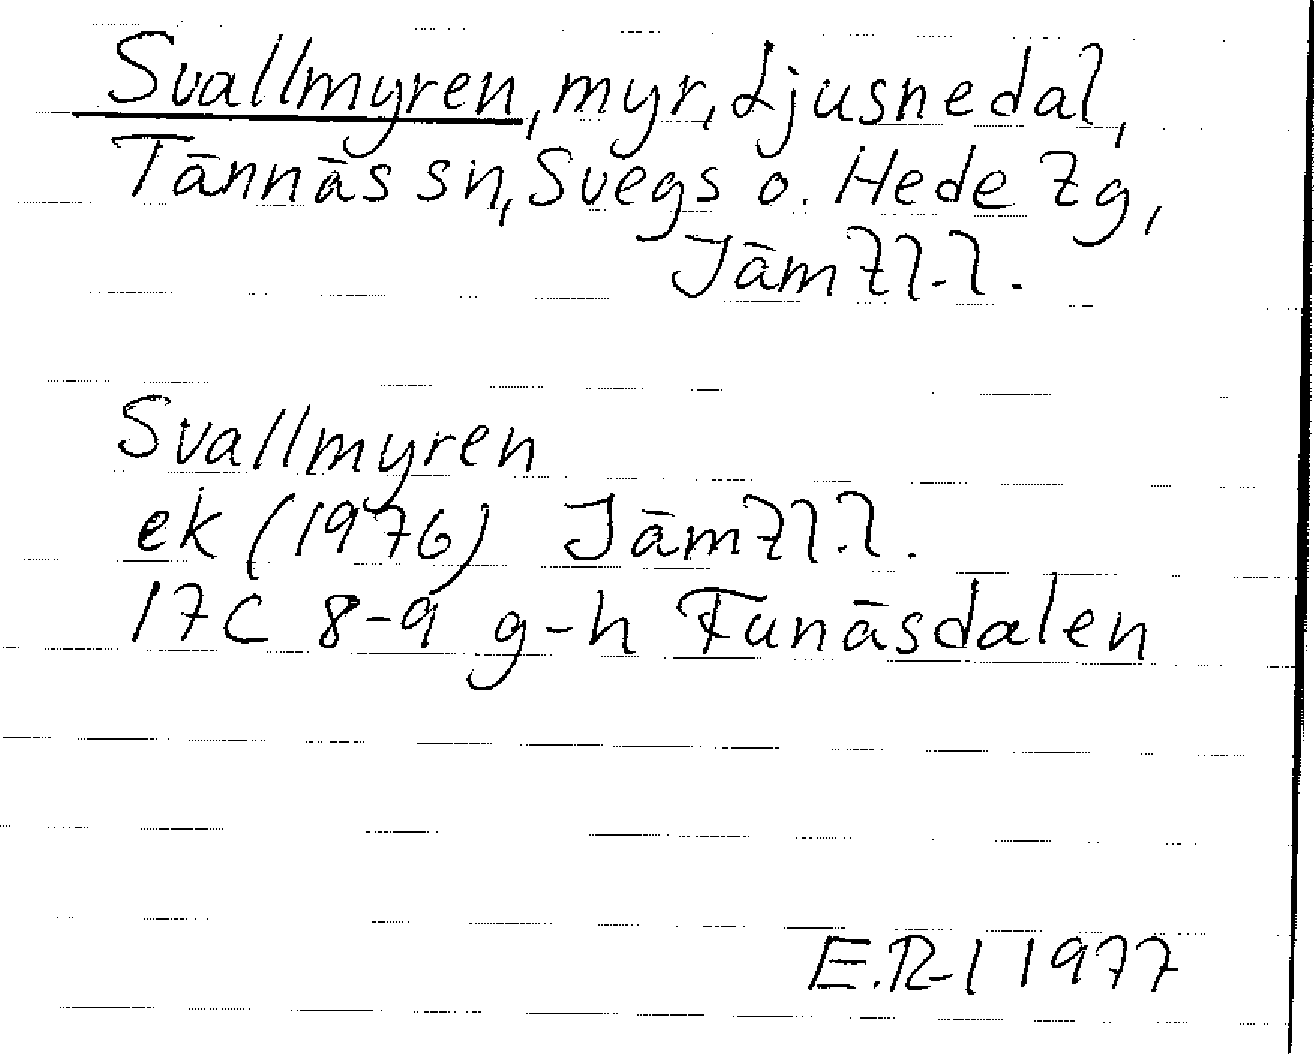 Svallmyren, myr, Ljusnedal,
Tännäs sn, Svegs o. Hede tg,
Jämtl.l.
Svallmyren
ek (1976) Jämtl.l.
17C 8-9 g-h Funäsdalen
E.R-l 1977